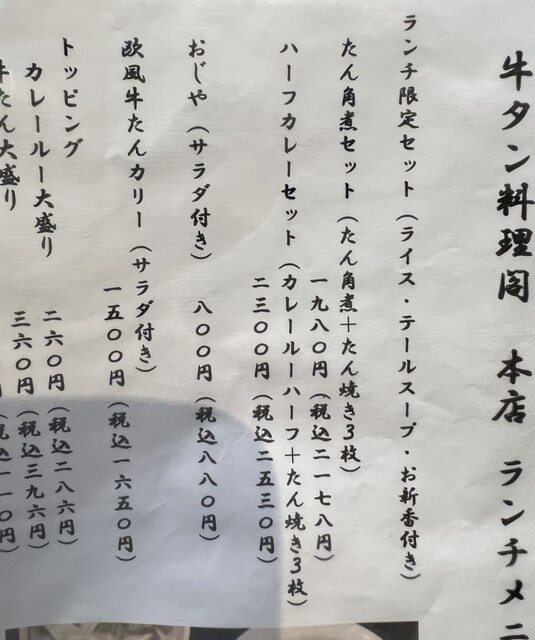 牛タン料理閣　本店　ランチメニ
ランチ限定セット（ライス・テールスープ・お新香付き）
たん角煮セット（たん角煮＋たん焼き3枚）
一九八〇円（税込二一七八円）
ハーフカレーセット（カレールーハーフ＋たん焼き3枚）
二三〇〇円（税込二五三〇円）
おじや（サラダ付き）　八〇〇円（税込八八〇円）
欧風牛たんカリー（サラダ付き）
一五〇〇円（税込一六五〇円）
トッピング
カレールー大盛り
二六〇円（税込二八六円）
牛たん大盛り
三六〇円（税込三九六円）